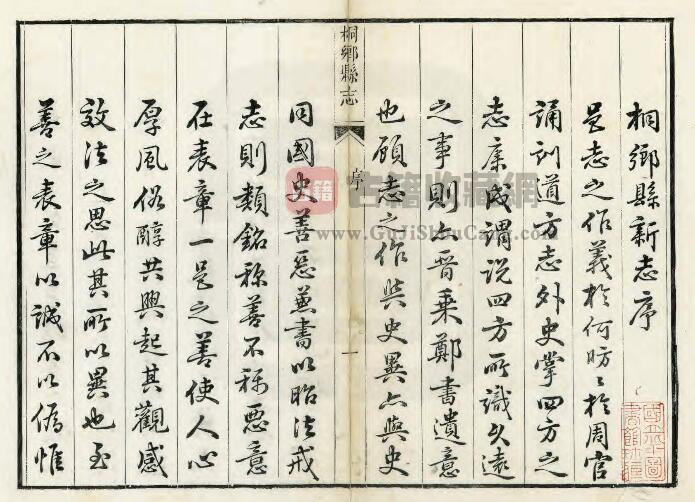 桐鄉縣新志序
邑志之作義於何昉〻於周官
誦訓道方志外史掌四方之
志康成謂說四方所識久遠
之事則亦晉乘鄭書遺意
也顧志之作與史異亦與史
桐鄉縣志
序
一
同國史善惡兼書以昭法戒
志則類銘稱善不稱惡意
在表章一邑之善使人心
厚風俗醇共興起其觀感
效法之思此其所以異也至
善之表章以誠不以偽惟
古籍收藏網
www.GuJiShuCang.com